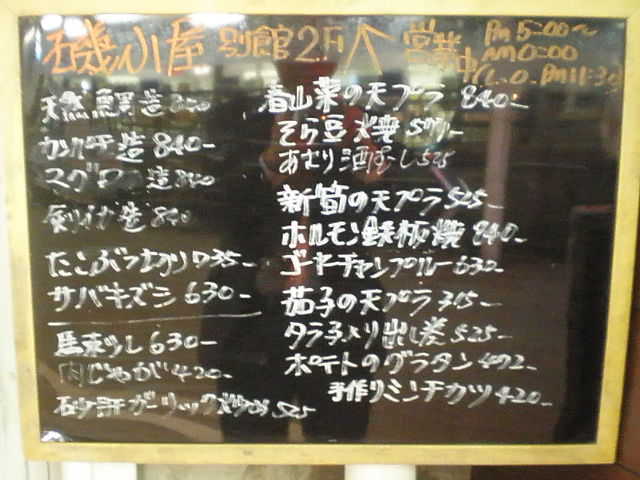 磯小屋 別館2F↑ 営業中
PM 5:00〜
AM 0:00
L.O. PM11:30
天然鯛造 840
カンパチ造 840-
マグロ造 840-
剣イカ造 840
たこぶつ切り 735-
サバキズシ 630-
馬刺し 630-
肉じゃが 420-
砂肝ガーリック 525
春山菜の天プラ 840-
そら豆焼
あさり酒むし 525
新筍の天プラ 525-
ホルモン鉄板焼 840-
ゴーヤチャンプルー 630-
茄子の天プラ 315-
タラ子 出し巻 525-
ポテトのグラタン 472-
手作りミンチカツ 420-